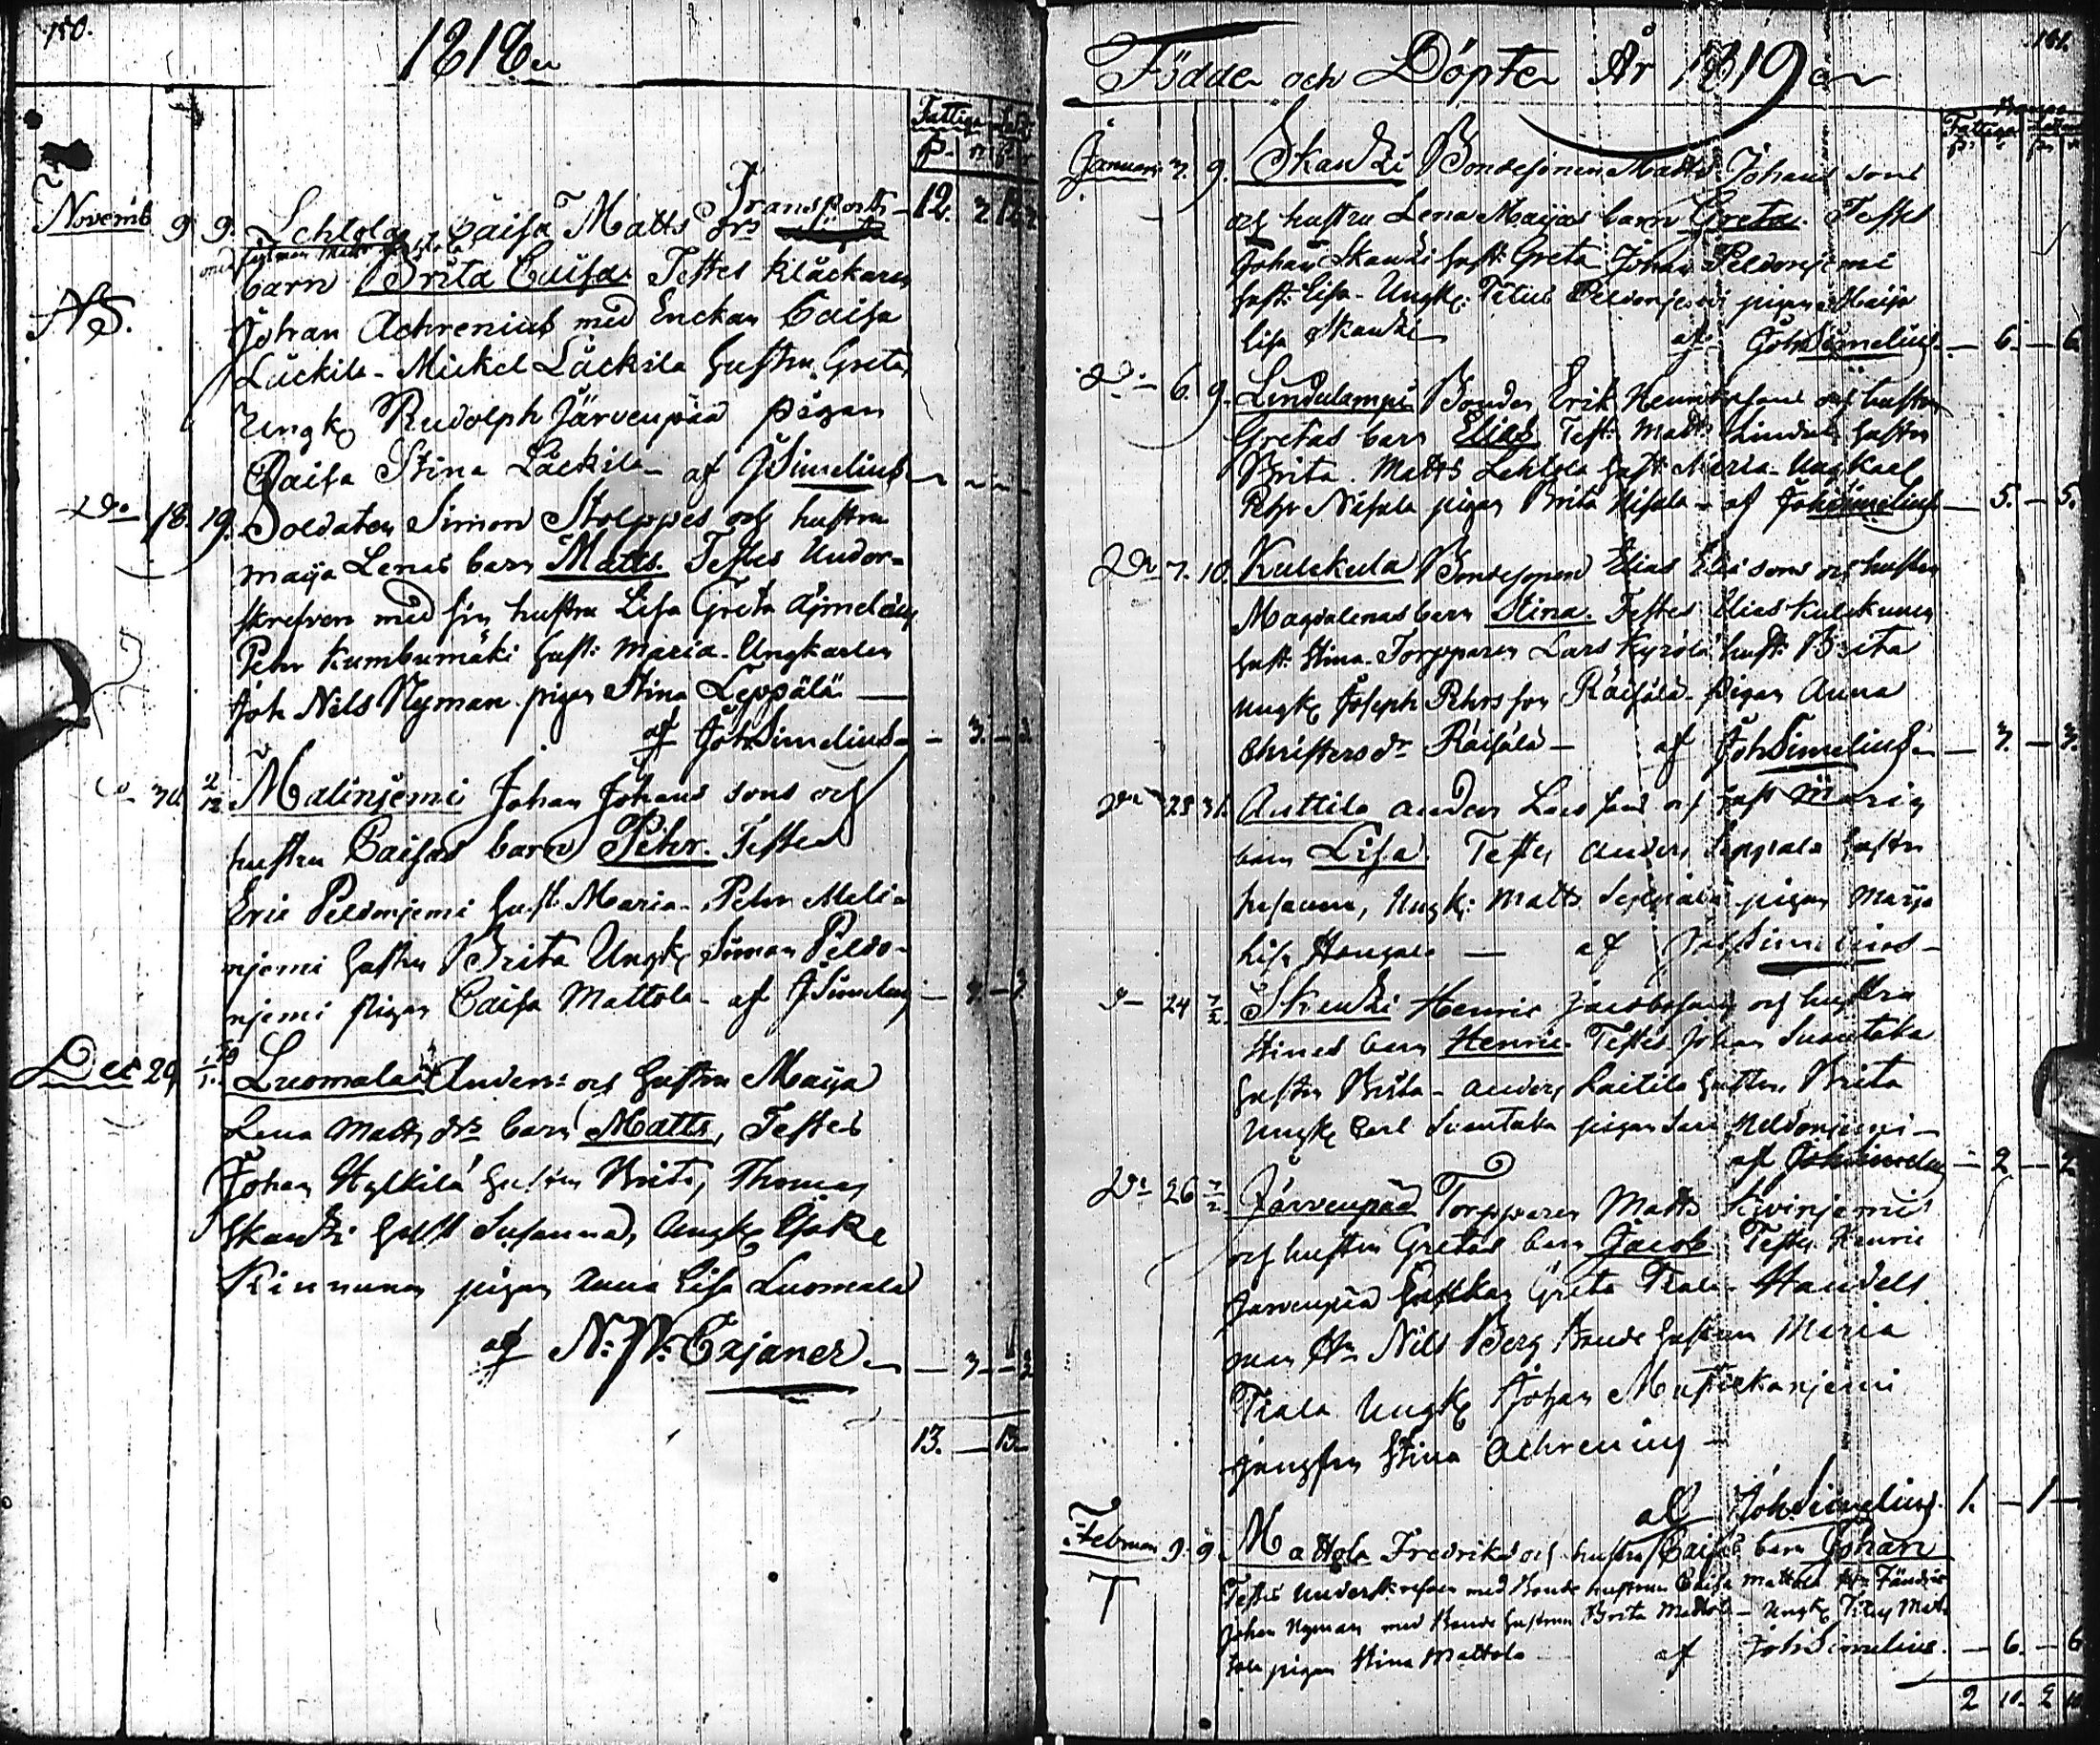 180.
1818
Fattiga
Transport 12. 2
Novemb 9 9. Lehtola Caisa Matts drs
barn Brita Caisa. Testes Klåckaren
NB. Johan Achrenius med Enckan Caisa
Låckila - Mickel Låckila hustru Greta,
Ungk Rudolph Järvenpää pigan
Caisa Stina Låckila - af JSimelius
Do 18. 19. Soldaten Simon Stolppes och hustru
Maija Lenas barn Matts. Testes Under-
skrefven med sin hustru Lisa Greta
Pehr Kumbumäki hust: Maria. Ungkarlen
Joh Nils Nyman pigan Stina Leppälä
af JohSimelius - 3. - 3.
30. 2/12 Malinjemi Johan Johans sons och
hustru Caisas barn Pehr. Testes
Eric Peldonjemi hust. Maria. Pehr Mali-
njemi hustru Brita Ungk Simon Peldo-
njemi pigan Caisa Mattola - af JSimelius
Dec 29 Luomala Anders och hustru Maija
Lena Matts drs barn Matts, Testes
Johan Hylkilä hustru Brita, Thomas
Skantzi hust Susanna, Ungk
Kinnunen pigan Anna Lisa Luomala
af N: P: Cajaner - 3 -
13. - 13
181.
Födde och Döpte År 1819
Fattiga
Januari 3. 9. Skantzi Bondesonen Matts Johans sons
och hustru Lena Maijas barn Greta. Testes
Johan Skantzi hust: Greta Johan Peldonjemi
hust: Lisa - Ungk: Petter Peldonjemi pigan Maija
Lisa Skantzi af JohSimelius. - 6. - 6.
Do 6. 9. Lindulampi Bonden Erik Henrikssons och hustru
Gretas barn Elias Test: Matts hustru
Brita. Matts Lehtola hust Maria. Ungkarl
Pehr Nisula pigan Brita Nisula - af JohSimelius - 5. - 5.
Do 7. 10. Kulckula Bondesonen Elias Elias sons och hustru
Magdalenas barn Stina. Testes Elias Kulckunen
hust. Stina. Torpparen Lars Kyrölä hust: Brita
ungk Joseph Pehrs son Räisälä. pigan Anna
Christersdr Räisälä - af JohSimelius - 3. - 3.
Do 25 31. Anttila Anders Lars sons och hust Maria
barn Lisa. Testes Anders Leppälä hustru
Susanna, Ungk: Matts pigan Marja
Lisa - af JohSimelius -
24 7/2 Skantzi Henric Jacobssons och hustru
Stinas barn Henric. Testes Johan Suontaka
hustru Brita - Anders Laitila hustru Brita
Ungk Carl Suontaka pigan Peldonjemi -
af JohSimelius - 2 - 2
Do 26 7/2 Järvenpää Torpparen Matts Kivinjemis
och hustru Gretas barn Jacob Testes Henric
Järvenpää Greta Tiala - Handels
man Hr Nils Berg Bonde hustrun Maria
Tiala Ungk Johan Mustickanjemi
jungfru Stina Achrenius -
af JohSimelius. 1. - 1 -
Februari 9. 9. Mattola Fredriks och hustru Caisas barn Johan
T Testes Underskrefven med Bonde hustrun Caisa Mattola
Johan Nyman med Bonde hustrun Brita Mattola - Ungk Matt
tola pigan Stina Mattola af JohSimelius. - 6. - 6
2 10. 2 10